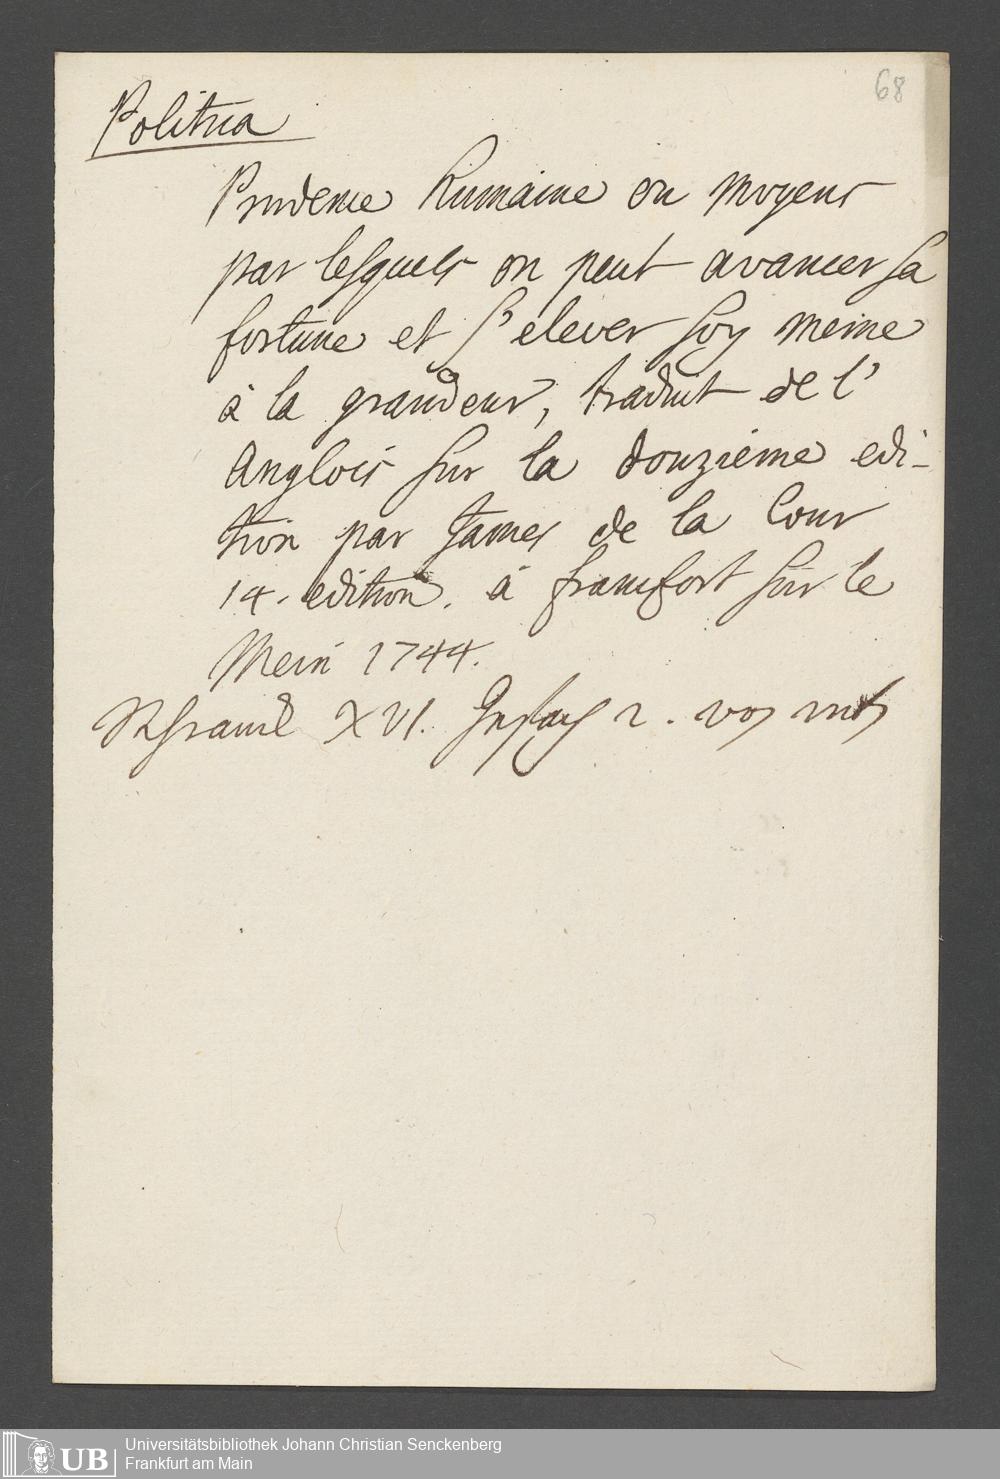 68
Politica
Prudence humaine ou moyens
par lesquels on peut avancer sa
fortune et s'elever soy meme
à la grandeur, traduit de l'
Anglois sur la douzieme edi-
tion par James de la Cour
14. edition. à francfort sur le
Mein 1744.
XVI. 2. von
UB
Universitätsbibliothek Johann Christian Senckenberg
Frankfurt am Main